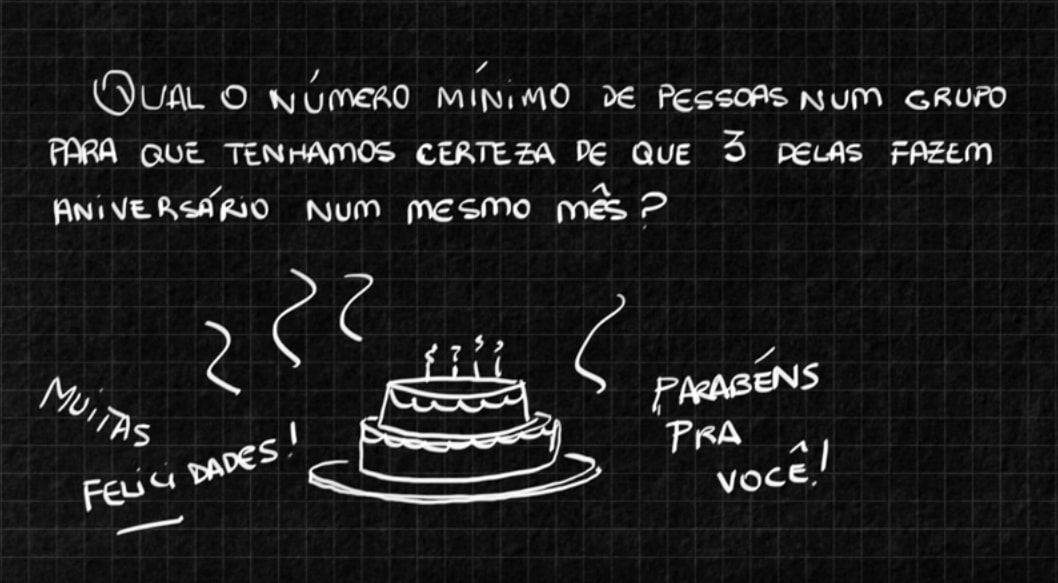 QUAL O NÚMERO MÍNIMO DE PESSOAS NUM GRUPO
PARA QUE TENHAMOS CERTEZA DE QUE 3 DELAS FAZEM
ANIVERSÁRIO NUM MESMO MÊS?
MUITAS
FELICIDADES!
PARABÉNS
PRA
VOCÊ!